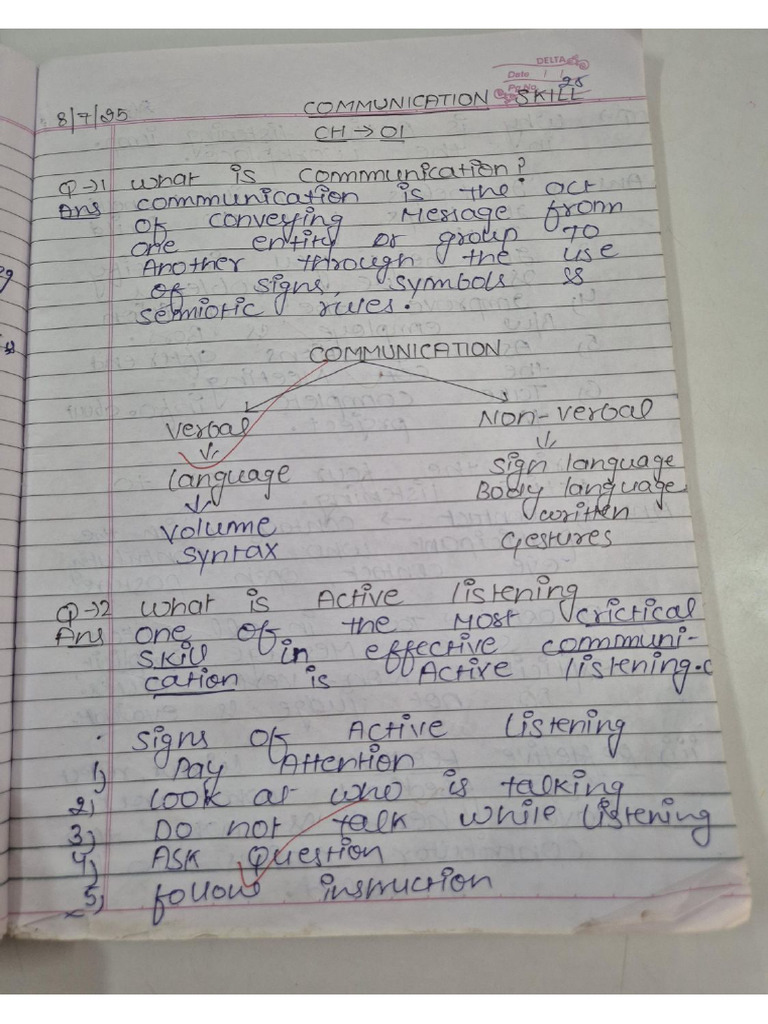 DELTA
Date / /
Pg No.
8/7/25 COMMUNICATION SKILL
CH → 01
Q→1 What is Communication?
Ans Communication is the act
of conveying Message from
one entity or group TO
Another through the use
of signs, symbols &
semiotic rules.
COMMUNICATION
Verbal Non-verbal
Language Sign language
Body language
Volume written
syntax Gestures
Q→2 What is Active Listening
Ans One of the Most crictical
skill in effective communi-
cation is Active listening.
Signs of Active Listening
1) Pay Attention
2) Look at who is talking
3) Do not talk while listening
4) Ask Question
5) follow instruction